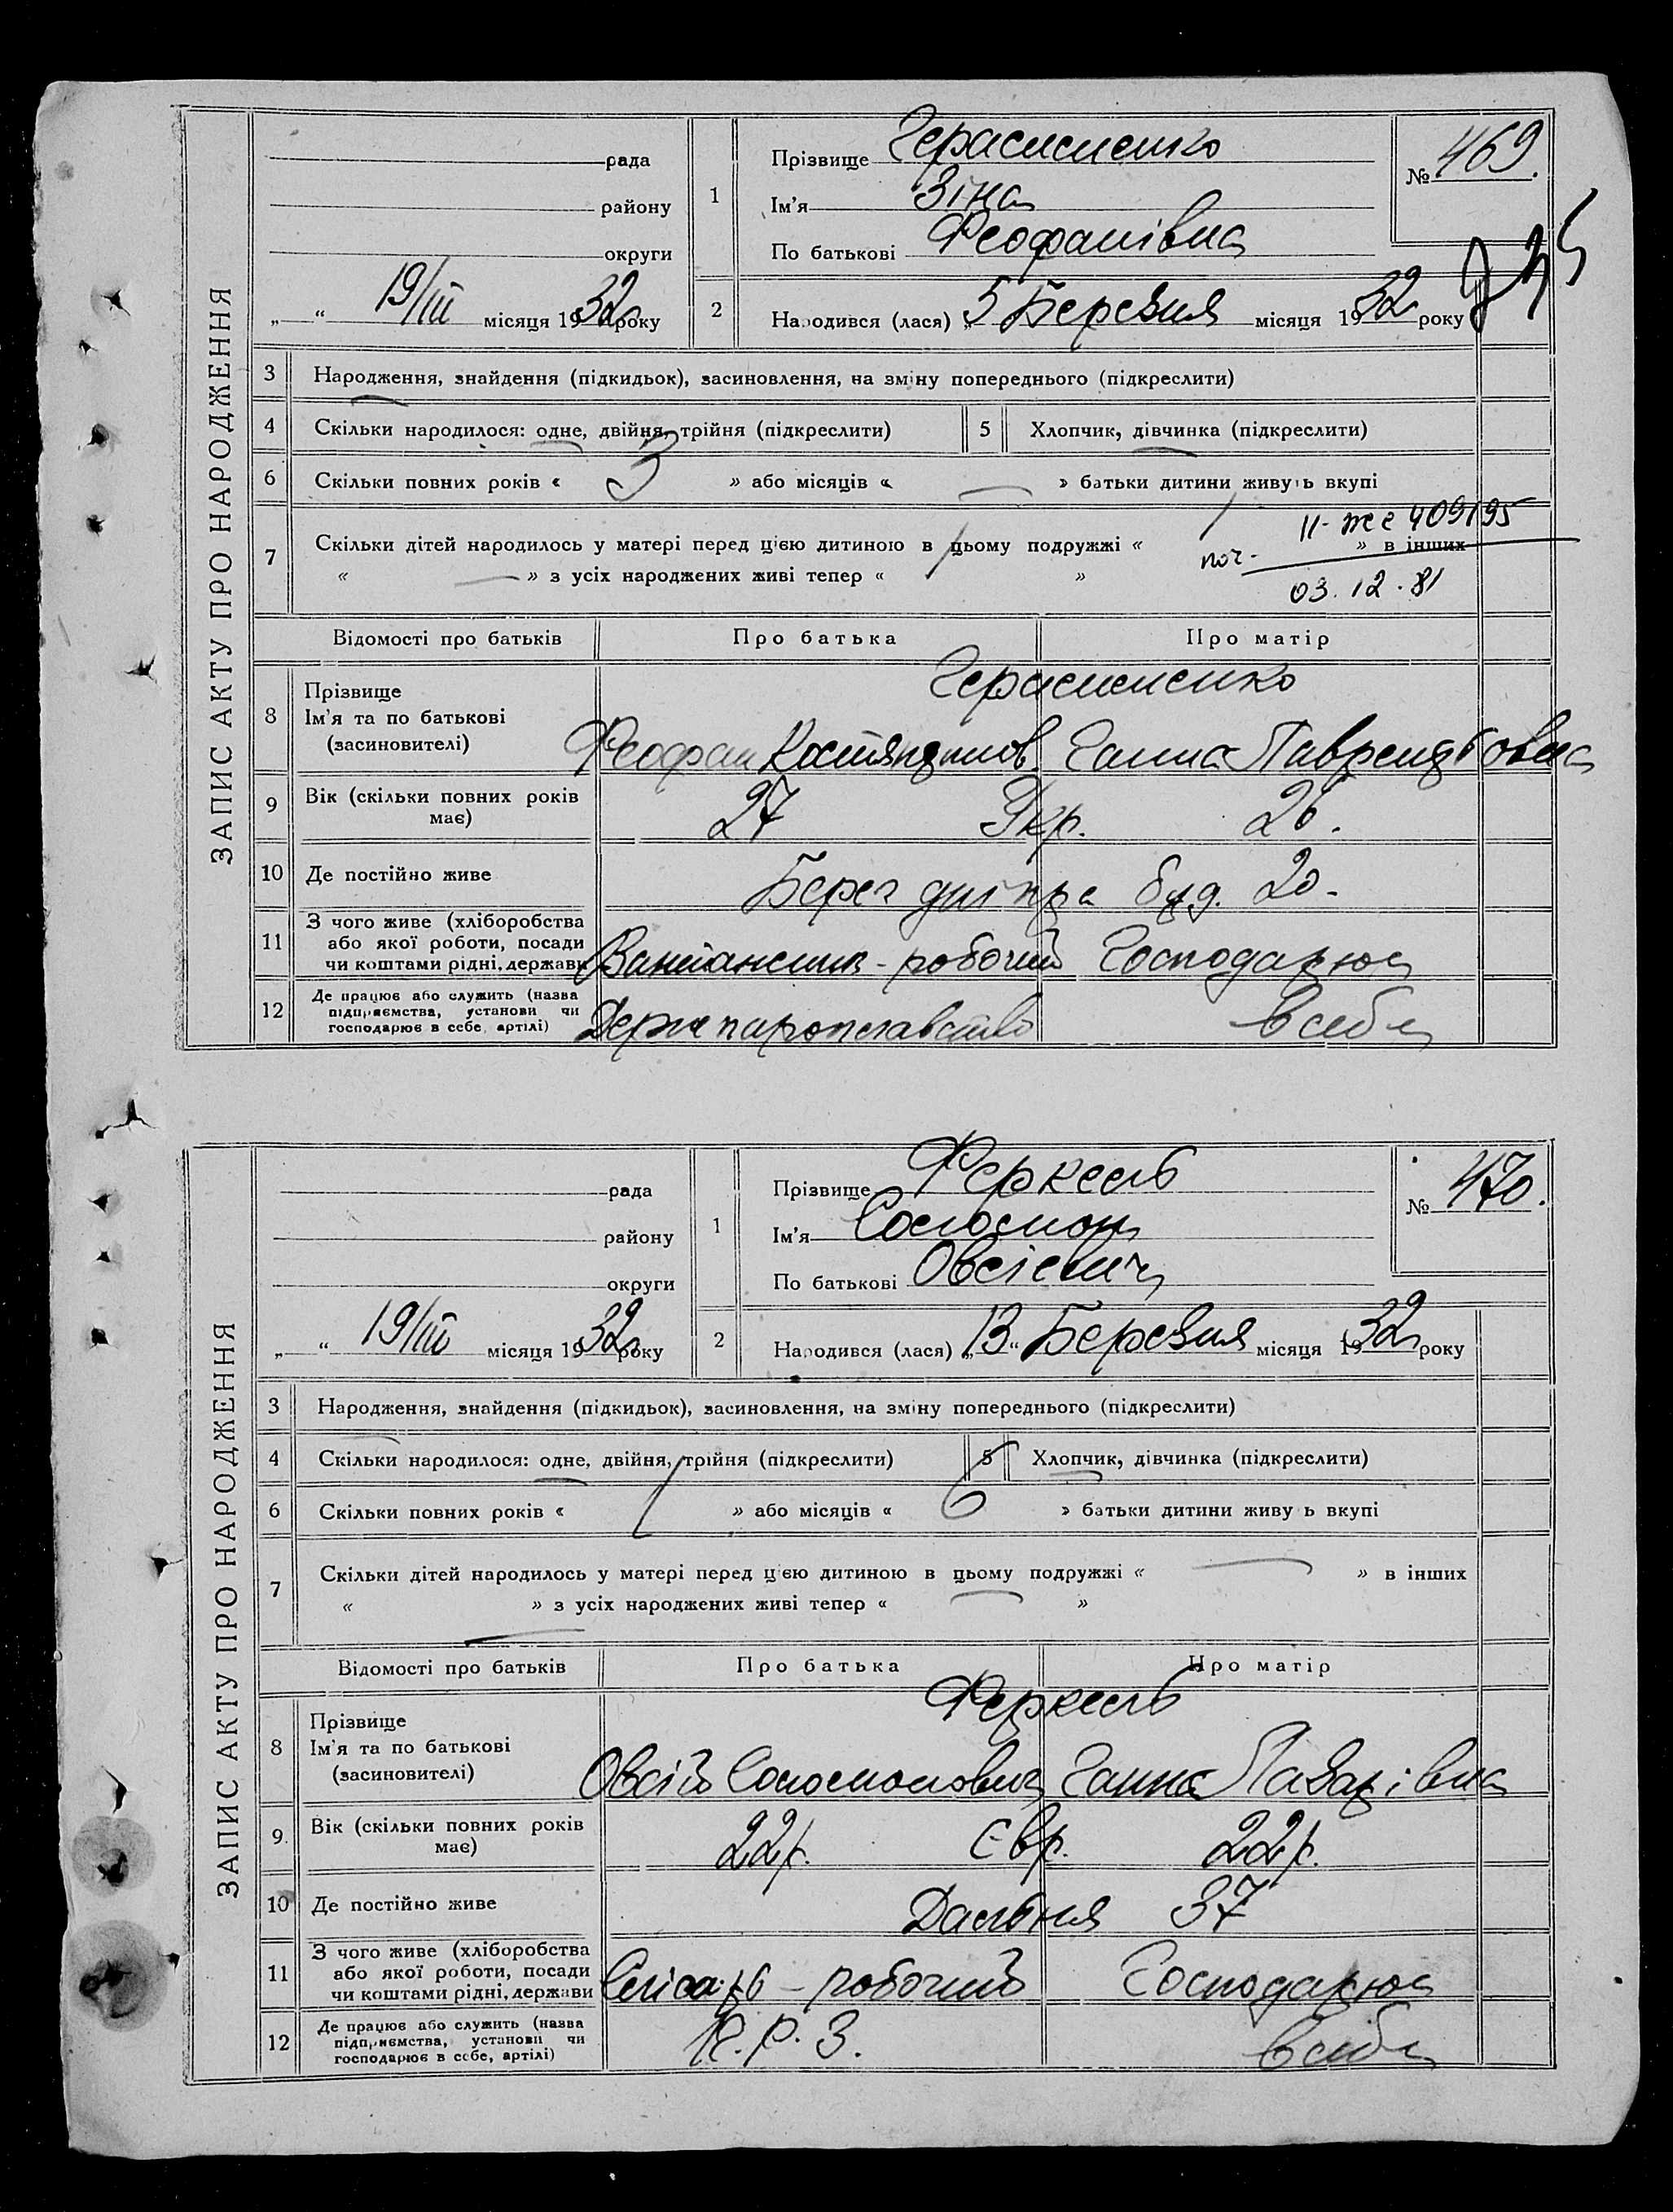 ЗАПИС АКТУ ПРО НАРОДЖЕННЯ
рада
району
округи
„ “ 19/III місяця 1932 року
1
Прізвище Герасименко
Ім'я Зіна
По батькові Феофанівна
№ 469.
2
Народився (лася) „5 Березня місяця 1932 року
3 Народження, знайдення (підкидьок), засиновлення, на зміну попереднього (підкреслити)
4 Скільки народилося: одне, двійня, трійня (підкреслити) 5 Хлопчик, дівчинка (підкреслити)
6 Скільки повних років « 3 » або місяців « — » батьки дитини живуть вкупі
7 Скільки дітей народилось у матері перед цією дитиною в цьому подружжі « 1 » в інших
« — » з усіх народжених живі тепер « 1 »
409195
03.12.81
Відомості про батьків Про батька Про матір
8 Прізвище
Ім'я та по батькові
(засиновителі)
Герасименко
Феофан Костянтинов. Ганна Лаврентьовна
9 Вік (скільки повних років має) 27 Укр. 26.
10 Де постійно живе Берег дніпра буд. 20-
11 З чого живе (хліборобства або якої роботи, посади чи коштами рідні, держави Вантажник - робочий Господарює
12 Де працює або служить (назва підприємства, установи чи господарює в себе, артілі) Держпароплавство в себе
ЗАПИС АКТУ ПРО НАРОДЖЕННЯ
рада
району
округи
„ “ 19/III місяця 1932 року
1
Прізвище Феркель
Ім'я Соломон
По батькові Овсієвич
№ 470.
2
Народився (лася) „13“ Березня місяця 1932 року
3 Народження, знайдення (підкидьок), засиновлення, на зміну попереднього (підкреслити)
4 Скільки народилося: одне, двійня, трійня (підкреслити) 5 Хлопчик, дівчинка (підкреслити)
6 Скільки повних років « 1 » або місяців « 6 » батьки дитини живу ь вкупі
7 Скільки дітей народилось у матері перед цією дитиною в цьому подружжі « — » в інших
« — » з усіх народжених живі тепер « — »
Відомості про батьків Про батька Про матір
8 Прізвище
Ім'я та по батькові
(засиновителі)
Феркель
Овсій Соломонович Ганна Лазарівна
9. Вік (скільки повних років має) 22р. Євр. 22р.
10 Де постійно живе Дальня 37
11 З чого живе (хліборобства або якої роботи, посади чи коштами рідні, держави Слюсарь - робочий Господарює
12 Де працює або служить (назва підприємства, установи чи господарює в себе, артілі) К.Р.З. в себе